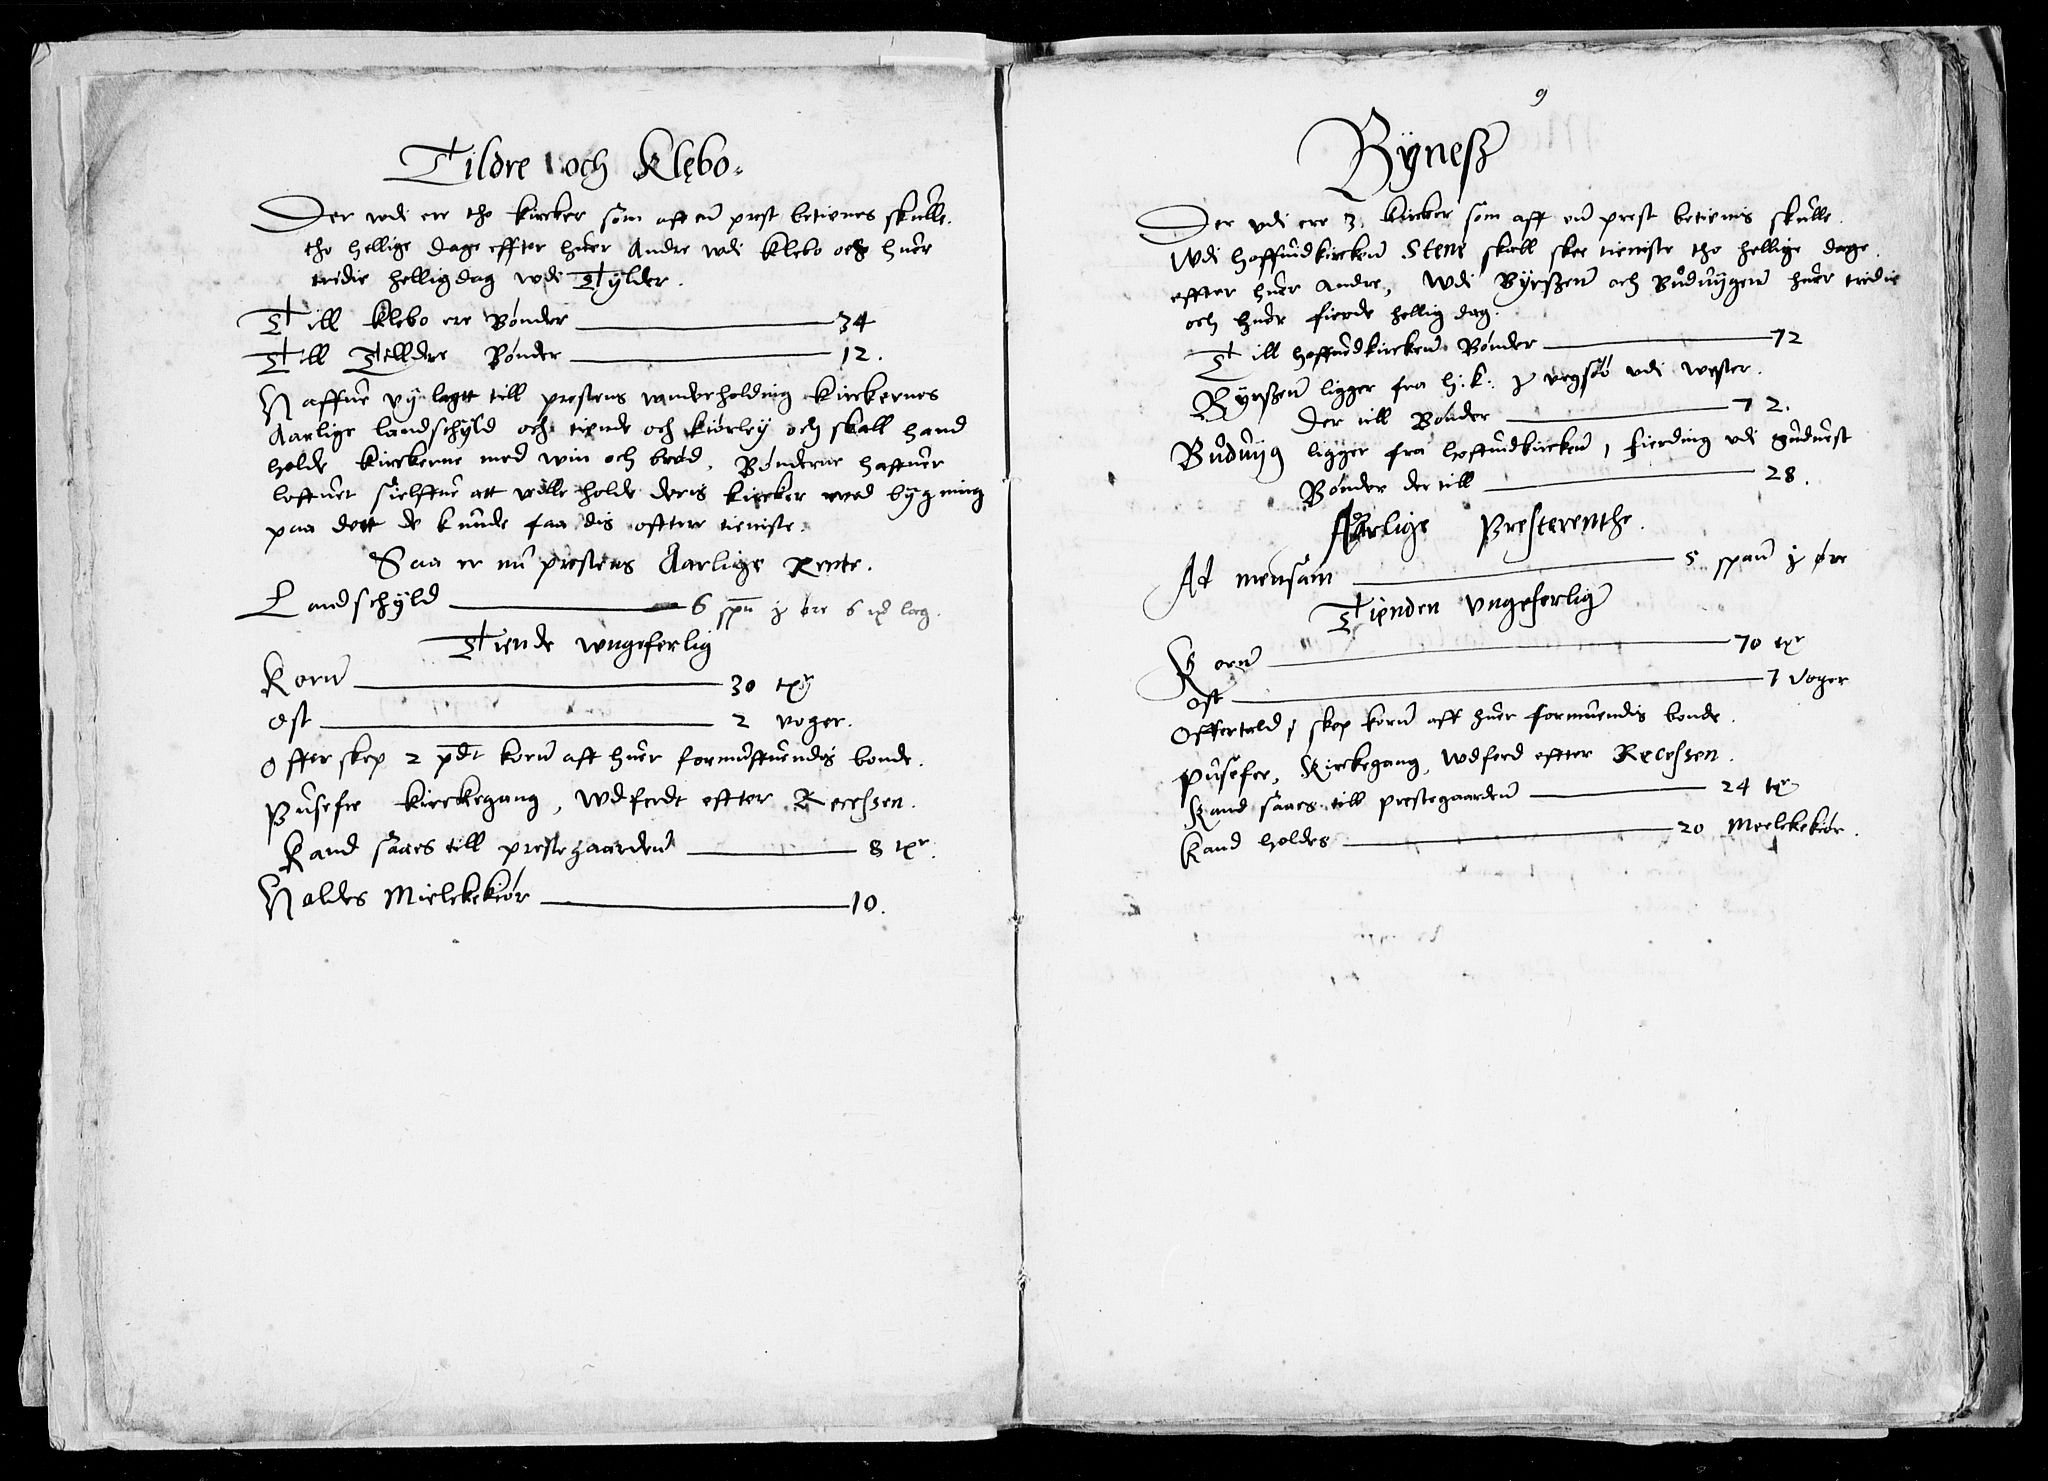 Tildre och Klebo.
Der wdi ere tho kircker som aff en prest betienes skulle.
tho hellige dage effter huer Andre wdi Klebo och huer
tredie hellig dag wdi Tylder.
Till Klebo ere Bønder 34
Till Tilldre Bønder 12.
Haffue vy lagtt till prestens vnderholding kirckernes
Aarlige landschyld och tiende och kiørley och skall hand
holde kirckerne med win och brød. Bønderne haffuer
loffuet sielffue att wille holde deris kircker wed bygning
paa dett de kunde faa dis offtere tieniste.
Saa er nu prestens Aarlige Rente.
Landschyld 6 spn j øre 6 lag.
Tiende wngeferlig
Korn 30 tr
Ost 2 voger.
Offer skep 2 pdt korn aff huer formuffuendis bonde.
Pusefee kirckegang, Wdferdt effter Recessen.
Kand saaes till prestegaarden 8 tr.
Holdes Mielckekiør 10.
9
Bynesz
Der vdi ere 3. kircker som aff en prest betienis skulle.
Wdi hoffuidkircken Stene skall skee tieniste tho hellige dage
effter huer andre, Wdi Byrszen och Buduigen huer tredie
och huer fierde hellig dag.
Till hoffuidkircken Bønder 72
Byrszen ligger fra h: k: j vegsøø vdi wester.
Der till Bønder 12.
Buduig ligger fra hoffuidkircken 1 fierding vdi suduest
Bønder der till 28.
Aarlige Presterenthe.
Ad mensam 5 span j øre
Tienden vngeferlig
Korn 70 tr
Ost 7 voger
Offertold 1 skep korn aff huer formuendis bonde.
Pusefee, Kirckegang, Wdferd effter Recessen.
Kand saaes till prestegaarden 24 tr
Kand holdes 20 Mielckekiør.